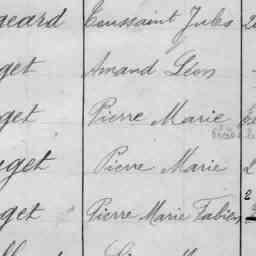 geard Toussaint Jules 2
get Amand Léon
get Pierre Marie
uget Pierre Marie 2
get Pierre Marie Fabien 2